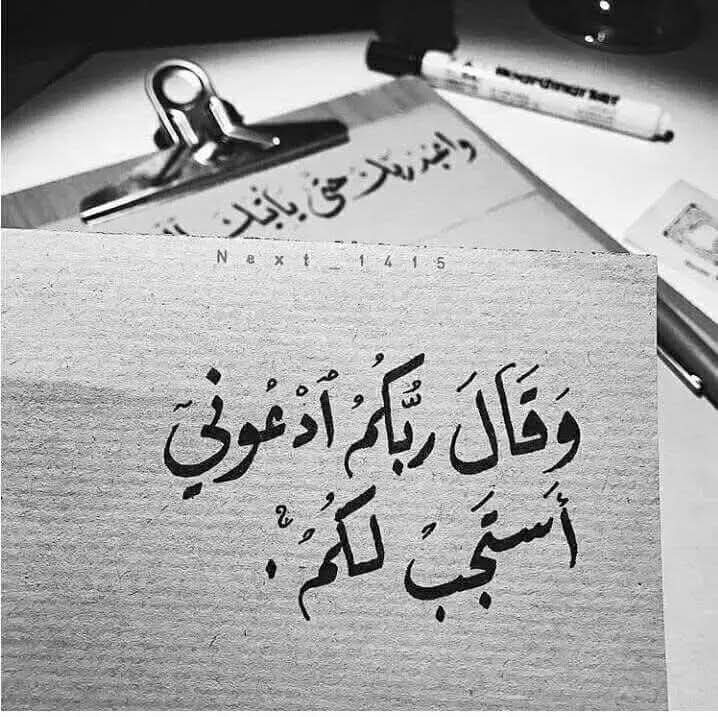 واعبد ربك حتى يأتيك
Next_1415
وَقَالَ رَبُّكُمُ ٱدْعُونِيٓ
أَسْتَجِبْ لَكُمْ ۚ